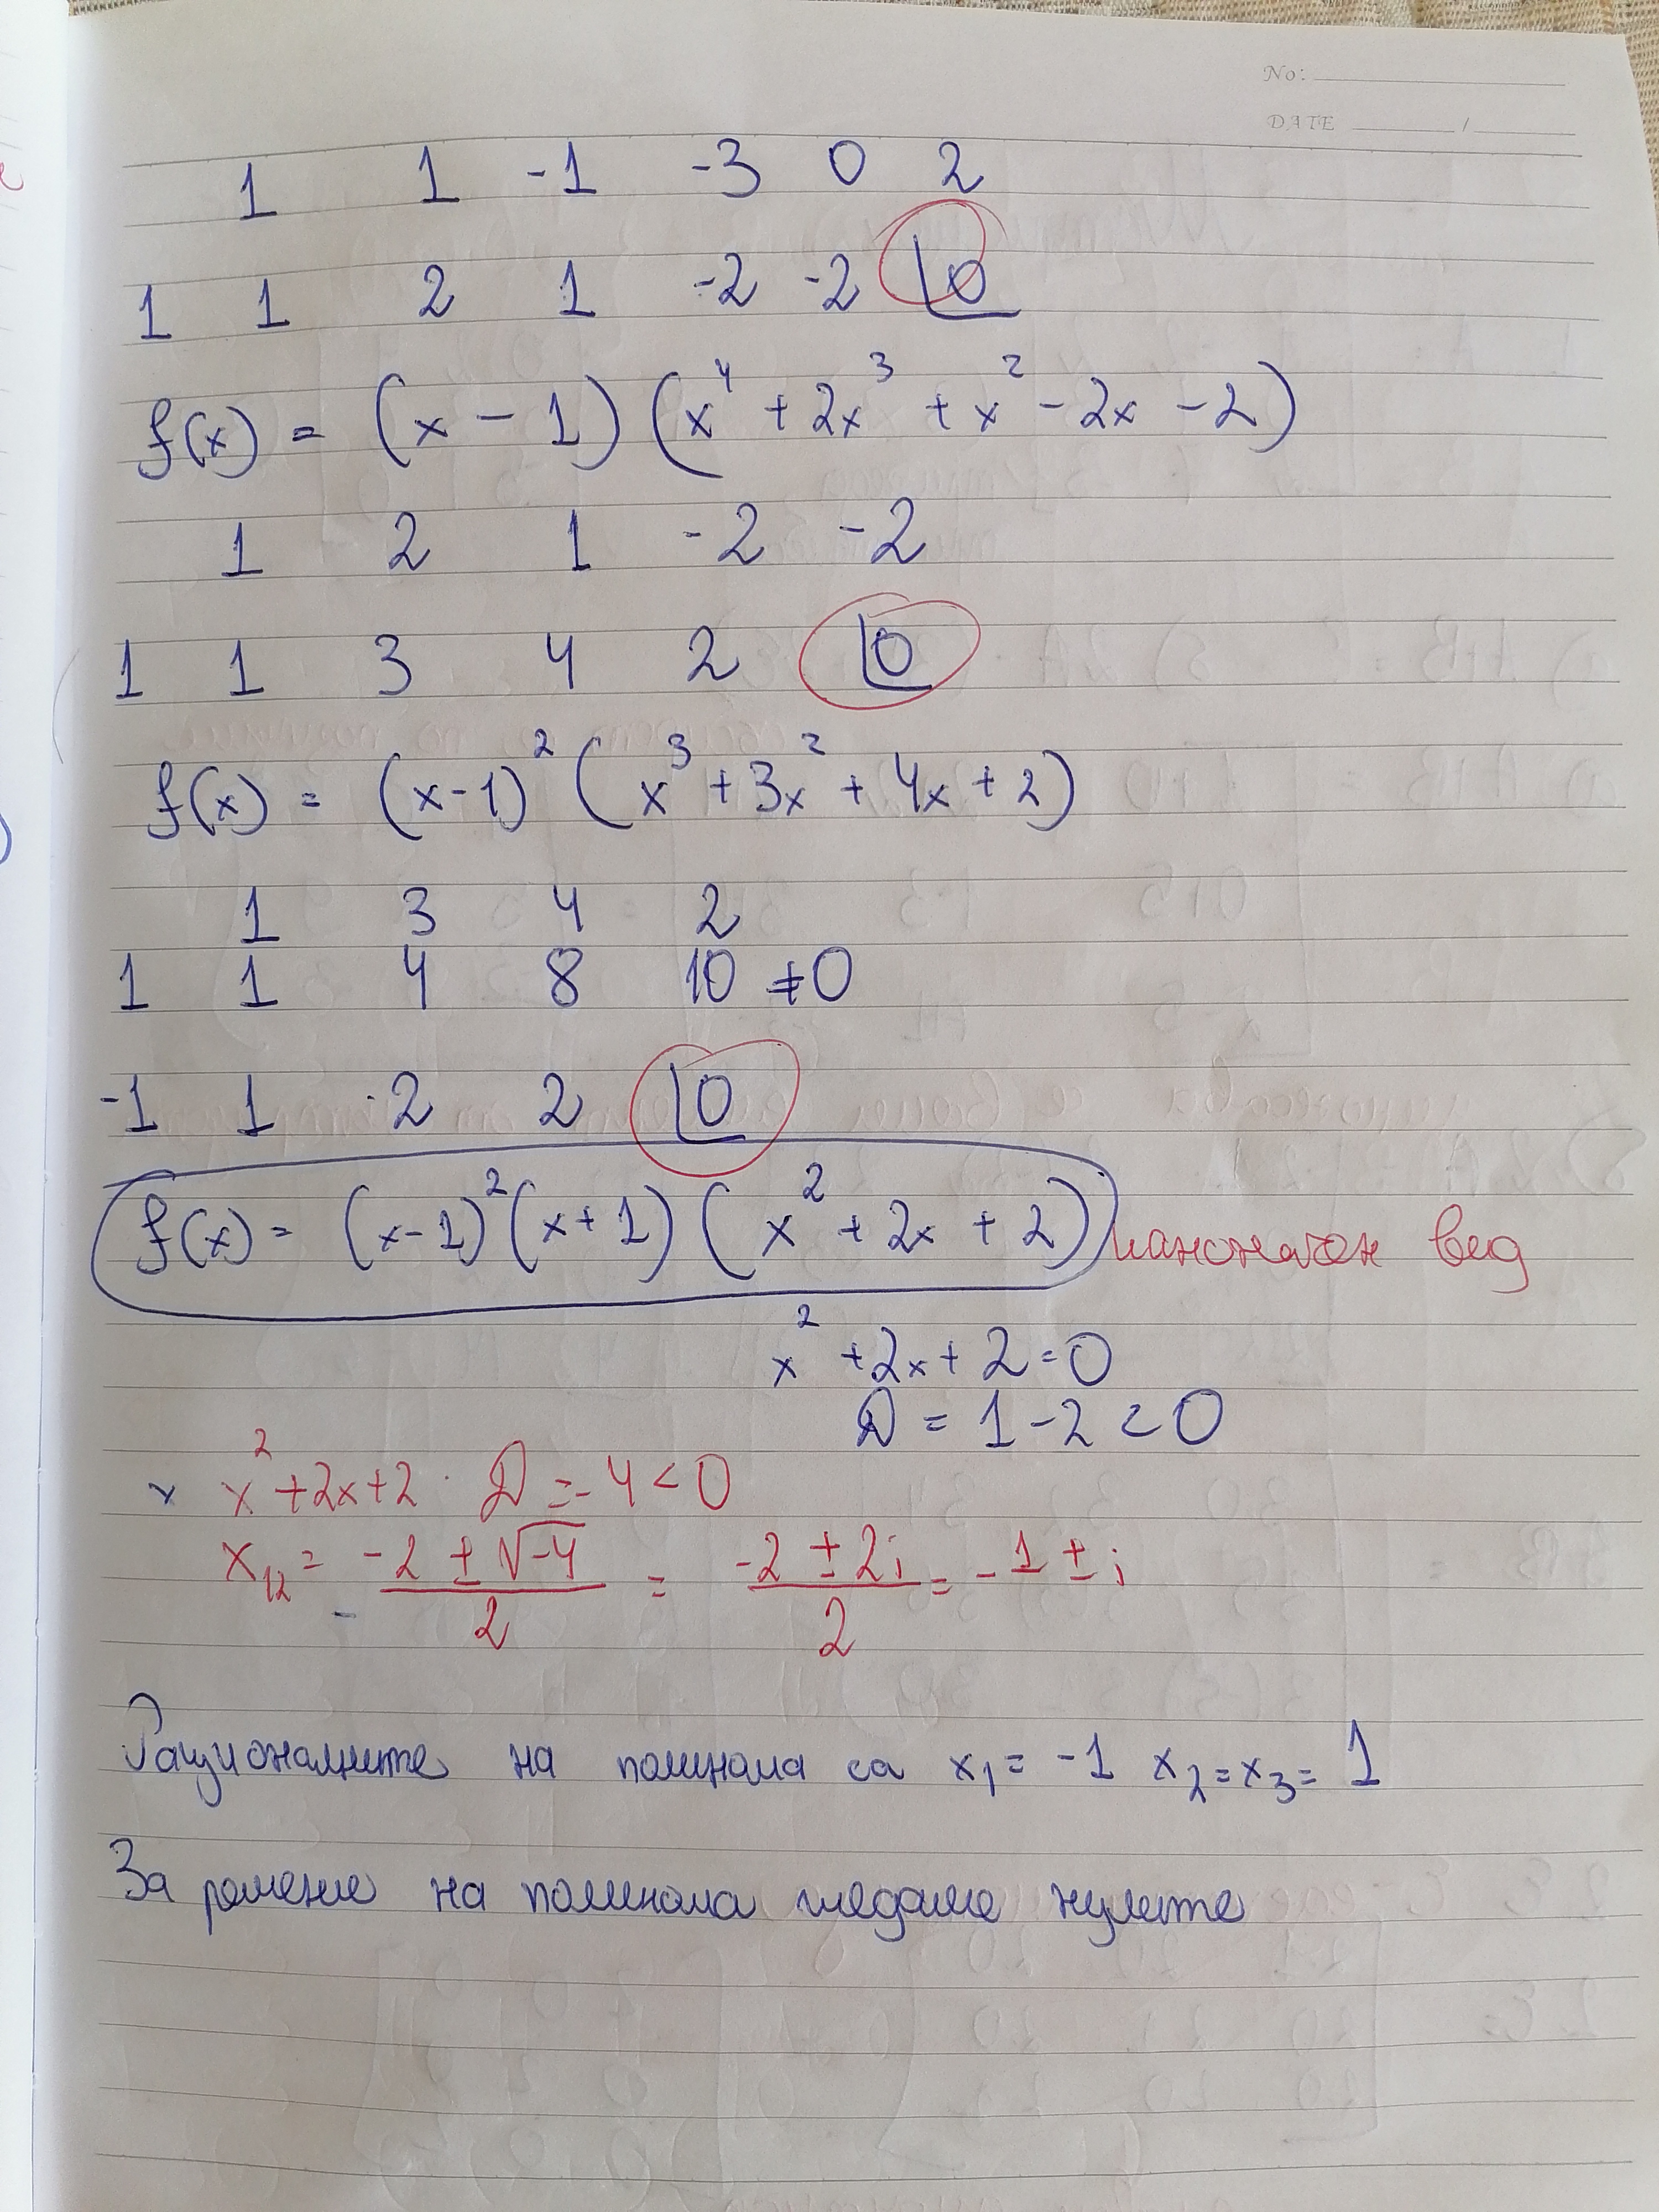 No:
DATE /
1 1 -1 -3 0 2
1 1 2 1 -2 -2 0
f(x) = (x - 1) (x⁴ + 2x³ + x² - 2x - 2)
1 2 1 -2 -2
1 1 3 4 2 0
f(x) = (x-1)² (x³ + 3x² + 4x + 2)
1 3 4 2
1 1 4 8 10 ≠ 0
-1 1 2 2 0
f(x) = (x-1)² (x+1) (x² + 2x + 2) каноничен вид
x² + 2x + 2 = 0
D = 1 - 2 < 0
x² + 2x + 2 D = -4 < 0
x₁₂ = (-2 ± √-4)/2 = (-2 ± 2i)/2 = -1 ± i
Рационалните на полинома са x₁ = -1 x₂ = x₃ = 1
За решение на полинома гледаме нулите